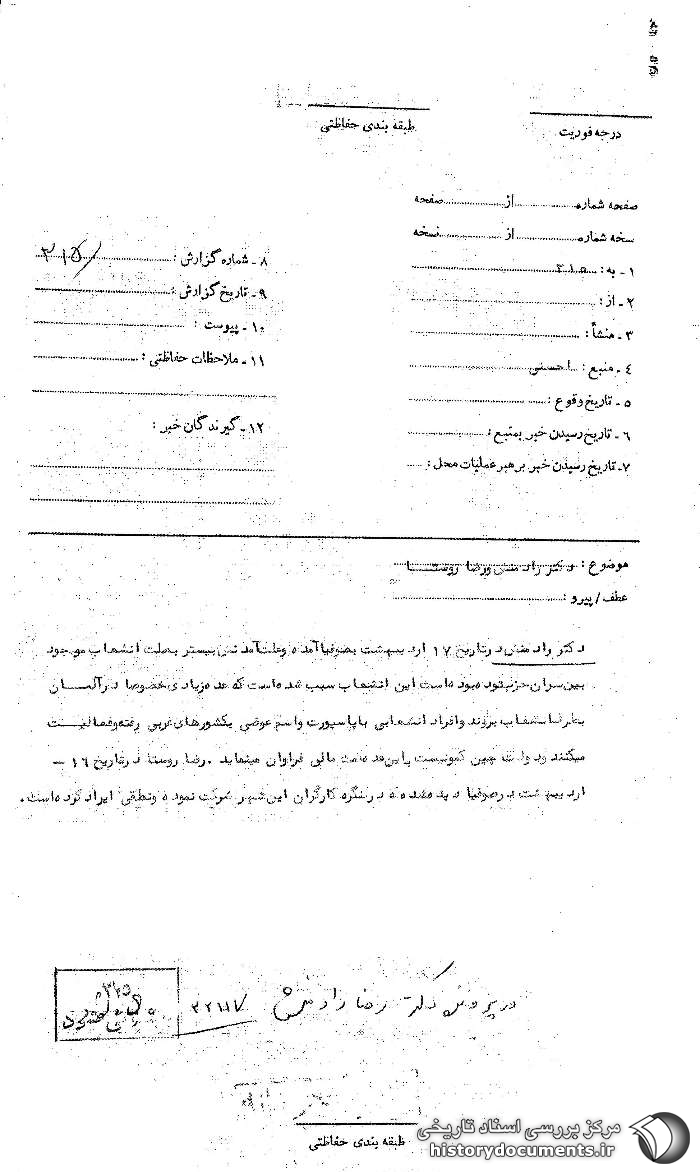 طبقه بندی حفاظتی
درجه فوریت
صفحه شماره از صفحه
نسخه شماره از نسخه
۱ - به : ۳۱۵
۲ - از :
۳ - منشأ :
۴ - منبع : احسنی
۵ - تاریخ وقوع :
۶ - تاریخ رسیدن خبر بمنبع :
۷ - تاریخ رسیدن خبر برهبر عملیات محل :
۸ - شماره گزارش : ۳۱۵/
۹ - تاریخ گزارش :
۱۰ - پیوست :
۱۱ - ملاحظات حفاظتی :
۱۲ - گیرندگان خبر :
موضوع : دکتر رادمنش ورضا روستا
عطف / پیرو :
دکتر رادمنش درتاریخ ۱۷ اردیبهشت بصوفیاآمده وعلت آمدنش بیستر بعلت انشعاب موجود
بین سران حزب توده بوده است این انشعاب سبب شده است که عده زیادی خصوصا درآلمان
بطرف انشعاب بروند وافراد انشعابی باپاسپورت واسم عوضی بکشورهای غربی رفته وفعالیت
میکنند ودولت چین کمونیست باین عده کمک مالی فراوان مینماید . رضا روستا درتاریخ ۱۶ -
اردیبهشت درصوفیا دیده شده که درکنگره کارگران این شهر شرکت نموده ونطقی ایراد کرده است .
در پرونده دکتر رضا رادمنش ۳۲۱۸۷
۳۱۵
بایگانی شود
طبقه بندی حفاظتی
مرکز بررسی اسناد تاریخی
historydocuments.ir